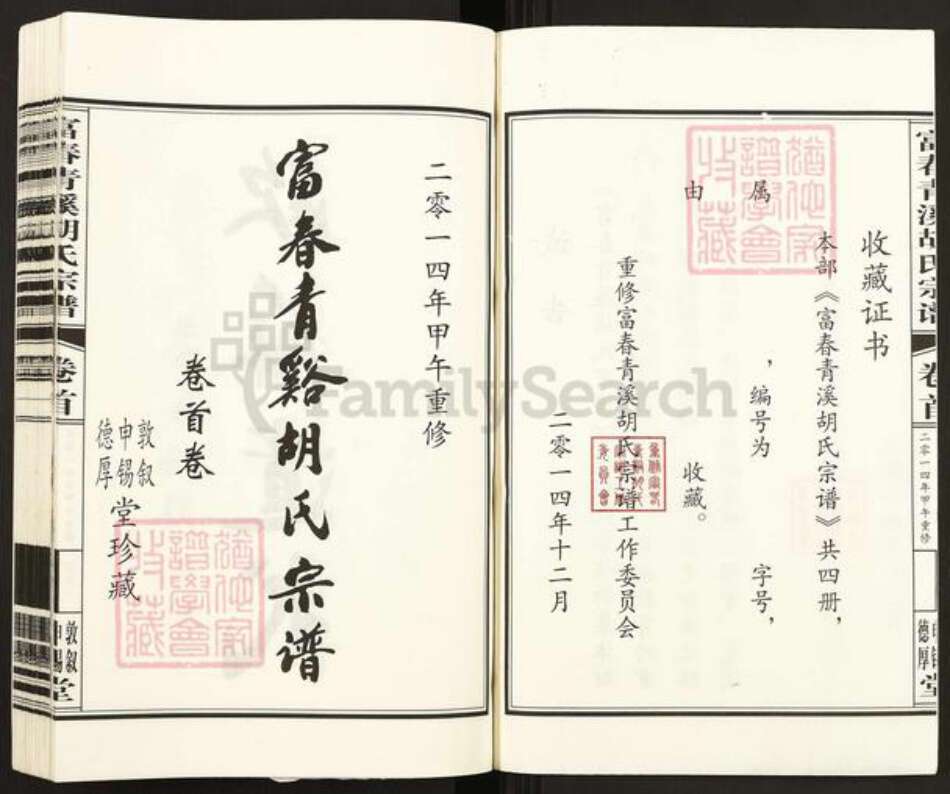 收藏证书
本部《富春青溪胡氏宗谱》共四册，
属 ，编号为 字号，
由 收藏。
重修富春青溪胡氏宗谱工作委员会
二零一四年十二月
二零一四年甲午重修
富春青谿胡氏宗谱
卷首卷
敦叙
申锡
德厚
堂珍藏
富春青溪胡氏宗谱
卷首
二零一四年甲午重修
德厚
堂
富春青溪胡氏宗谱
卷首
敦叙
申锡
堂
FamilySearch